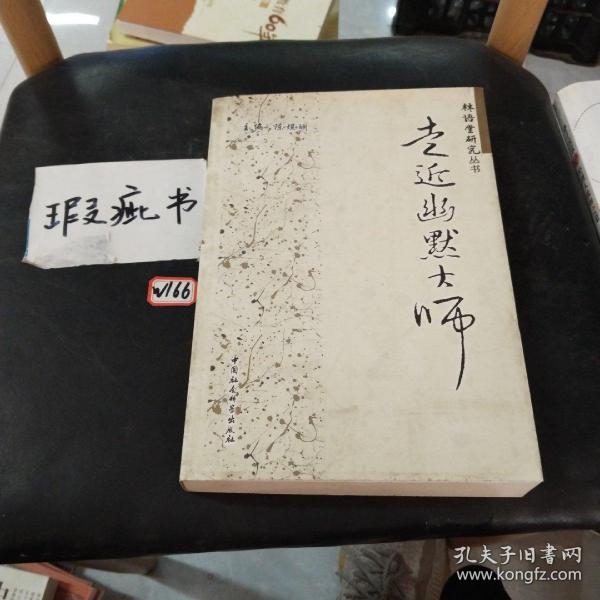 林语堂研究丛书
走近幽默大师
主编：陈煜斓
中国社会科学出版社
瑕疵书
W166
孔夫子旧书网
www.kongfz.com